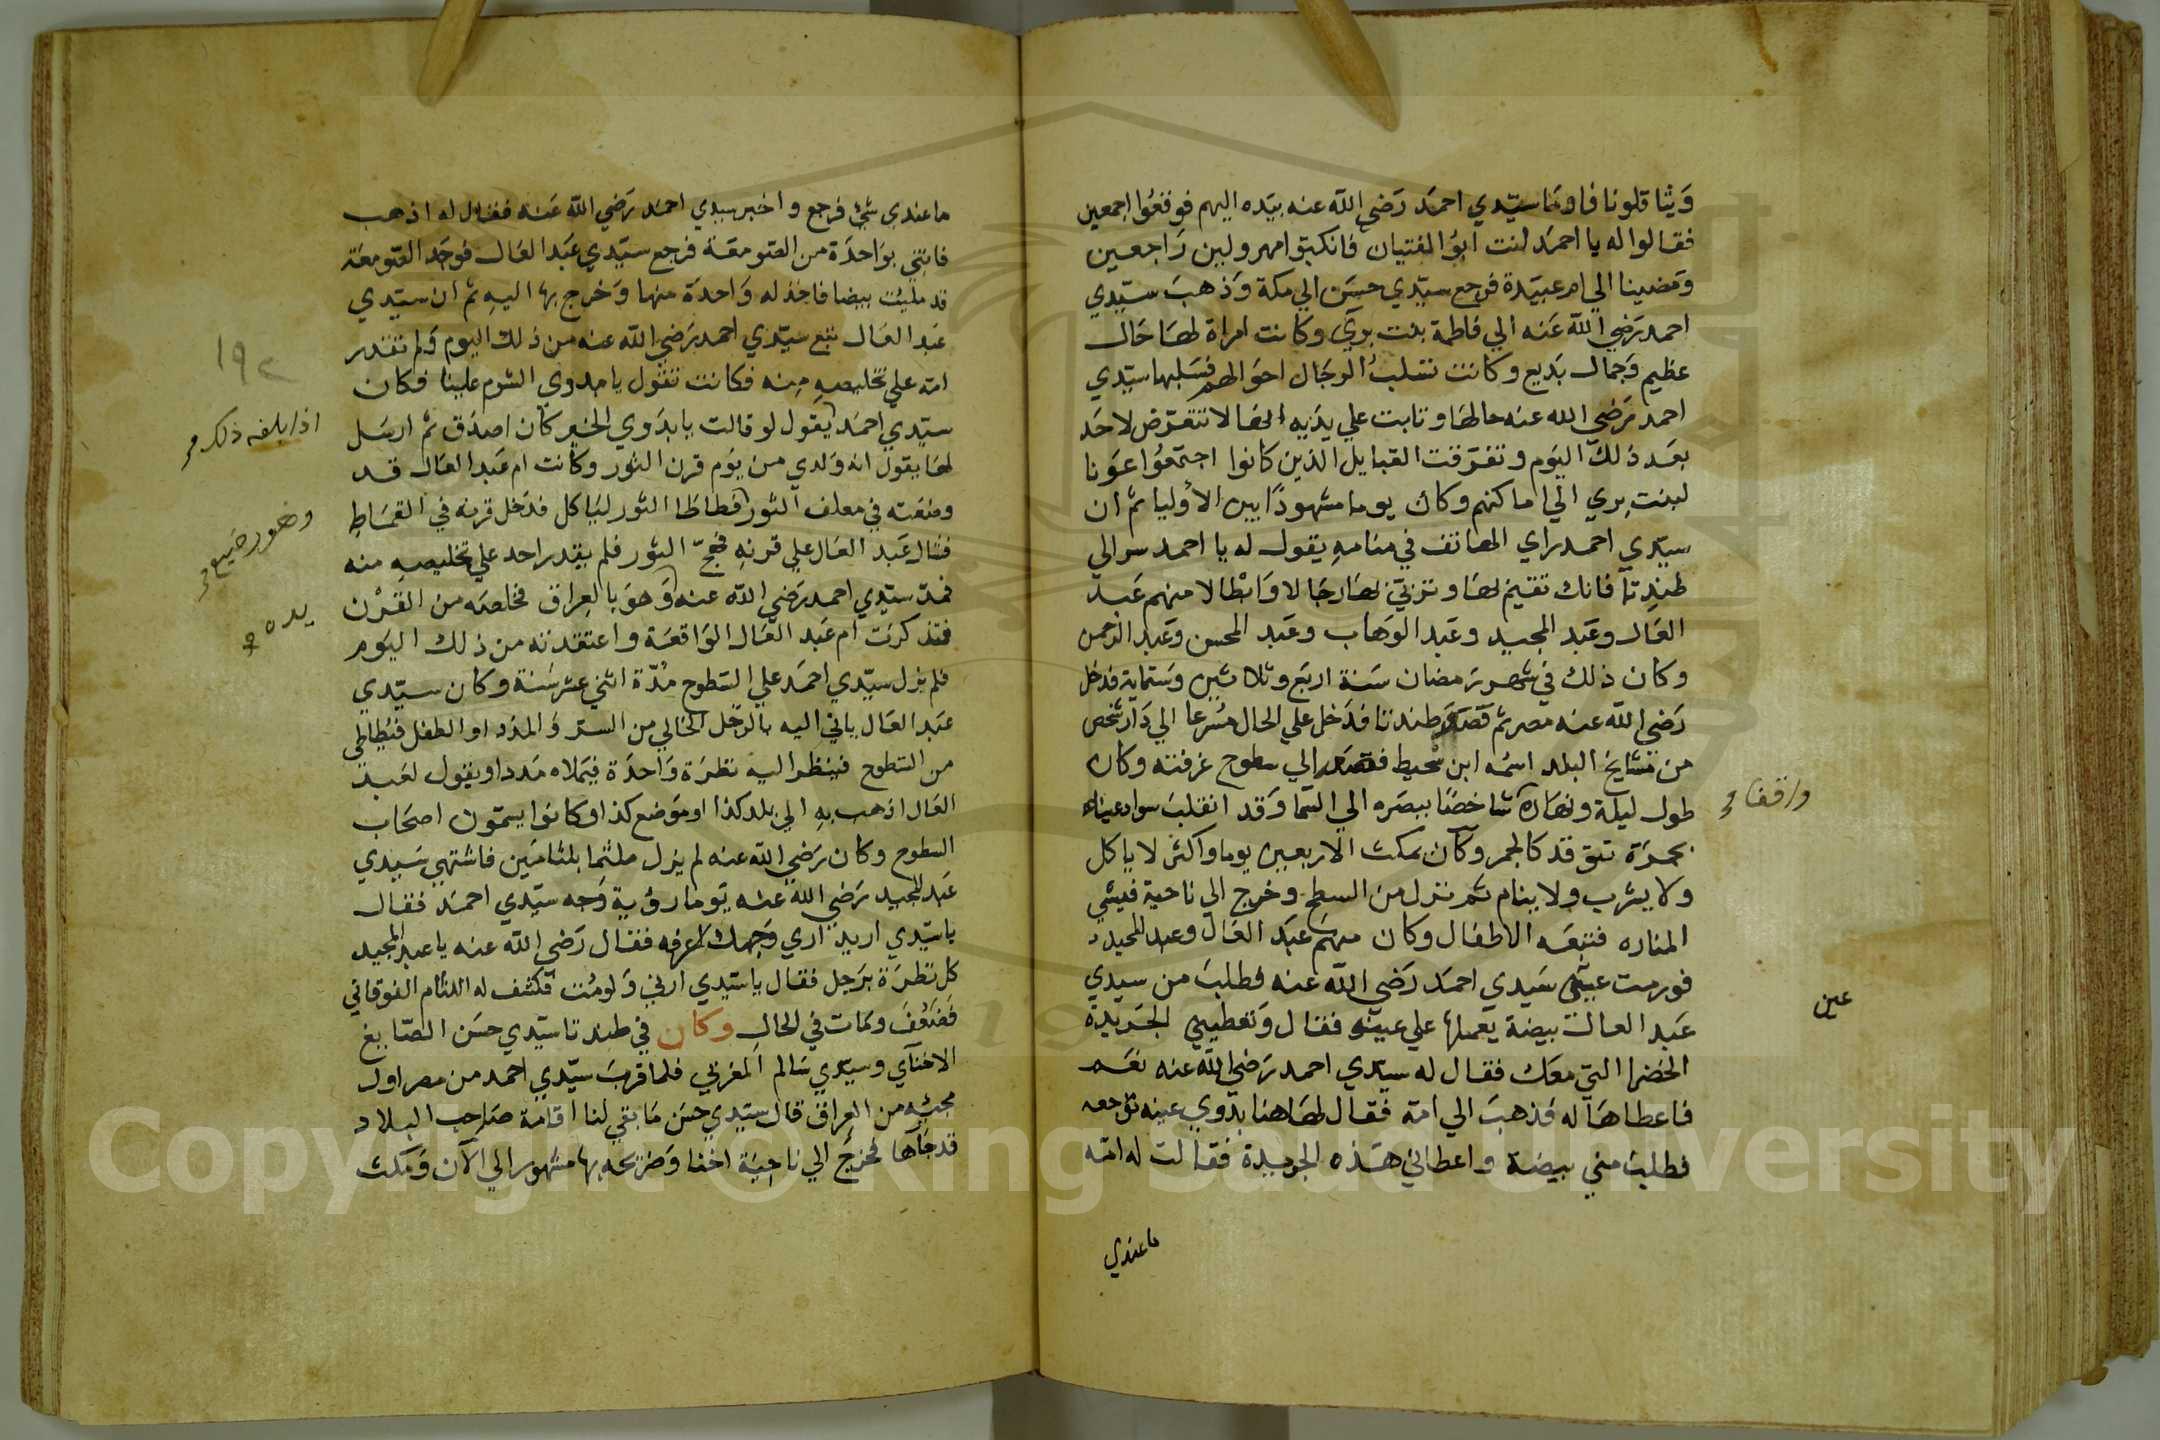 ويثاقلونا فاومَا سيّدي احمدَ رَضي الله عنه بيَده اليهم فوقعُوا اجمعين
فقالوا له يا احمدَ انت ابوُ الفتيان فانكبّوا مهرولين رَاجعين
ومَضينا الي ام عبيَدة فرجع سيّدي حسَن الي مكة وَذهبَ سيّدي
احمد رَضي الله عَنه الي فاطمة بنت برّي وكانت امراة لهَا حَال
عظيم وَجمال بَديع وكانت تسَلبُ الرجَال احوَالهم فسَلبها سيّدي
احمد رَضي الله عنه حالهَا وتابت علي يدَيه انها لا تتعرّض لاحَد
بعَد ذلك اليَوم وتفرّقت القبايل الذين كانوا اجتمَعُوا عَونا
لبنت بري الي اماكنهم وكان يوما مشهودًا بين الاوليا ثم ان
سيّدي احمد راي الهَاتف في منامهِ يقول له يا احمد سر الي
طندِتا فانك تقيم بهَا وتربّي بهَا رجَالا وَابْطالا منهم عَبد
العَال وعَبد المجيد وعَبد الوَهاب وعَبد المحسن وعَبد الرَحمن
وكان ذلك في شهر رَمضان سَنة اربَع وثلاثين وسَتماية فدخل
رَضي الله عنه مصر ثم قصَدَ طندتا فدَخل علي الحال مسُرعا الي دَار شخص
من مَشايخ البلد اسمُه ابن شحيط فصعد الي سطوح غرفته وكان
طول ليله ونهَاره شاخصًا ببصَره الي السَّما وَقد انقلبَ سواد عيناه
بحمرَة تتوقد كالجمر وكان يمكث الاربعين يوما واكثر لا ياكل
ولا يشرب ولا ينام ثم نزل من السطح وخرج الي ناحية فيشي
المناره فتبعَه الاطفال وكان منهم عَبَد العَال وعبد المجيد
فورمت عين سَيدي احمَد رَضي الله عنه فطلبَ من سيدي
عَبد العال بيضة يَعملها علي عينه فقال وَتعطيني الجَريدة
الخضرا التي معَك فقال له سيدي احمد رَضي الله عنه نعَم
فاعطاهَا له فذهبَ الي امّه فقال لهَا هنا بدَوي عينه توجعه
فطلبَ مني بيضة واعطاني هَذه الجريدة فقالت له امّه
ماعندي
واقفا
عين
ما عندي شئ فرجع واخبر سيدي احمد رَضي الله عَنه فقال له اذهب
فاتني بوَاحدَة من الصَّومعَة فرجع سيّدي عَبد العَال فوجَد الصَّومعَة
قد مليئت بيضا فاخذ له وَاحدَة منها وَخرج بها اليهِ ثم ان سيّدي
عَبد العَال تبع سيّدي احمد رَضي الله عنه من ذلك اليوم وَلم تقدر
امّه علي تخليصهِ مِنه فكانت تقول يا بدوي الشوم علينا فكان
سيّدي احمَد يَقول لو قالت يا بدَوي الخير كان اصدَق ثم ارسَل
لهَا يقول انه وَلدي من يوَم قرن الثور وكانت ام عَبد العَال قد
وضعَته في معلف الثور فطاطا الثور ليَاكل فدَخل قرنه في القمَاطِ
فشال عَبد العَال علي قرنهِ فهجّ الثور فلم يقدر احد علي تخليصِهِ منه
فمدّ سيّدي احمد رَضي الله عنه وَهوَ بالعِراق فخلصَه من القرْن
فتذكرت ام عَبد العَال الوَاقعَة واعتقدته من ذلك اليَوم
فلم يزل سيّدي احمَد علي السَّطوح مُدّة اثني عشر سَنة وكان سيّدي
عَبد العَال ياتي اليه بالرَّجل الخالي من السر والمدَد او الطفل فيُطاطي
من السَّطوح فينظر اليه نظرَة وَاحدَة فيَملاه مَددا ويقول لعَبد
العَال اذهب بهِ الي بلد كذا او مَوضع كذا وكانوا يسَمّون اصحَاب
السطوح وكان رَضي الله عنه لم يزل ملثما بلثامَين فاشتهي سَيدي
عَبد المجيد رَضي الله عنه يَوما رؤية وَجه سيّدي احمَد فقال
يا سيّدي اريد اري وَجهك لاعرفه فقال رَضي الله عنه يا عبد المجيد
كل نظرَة برَجل فقال يا سيّدي ارني وَلو مُت فكشف له اللثام الفوقاني
فصَعُق وَمات في الحال وكان في طندتا سيّدي حسَن الصّايغ
الاخنآي وسيّدي سَالم المغربي فلما قربَ سيّدي احمد من مصر اول
مجيئه من العِراق قال سيّدي حسَن مَا بقي لنا اقامة صَاحب البلاد
قد جآها فخرج الي ناحيَة اخنا وَضريحه بها مشهور الي الآن وَمَكث
١٩٢
اذا بلغه ذلك
وهو رضيع
يده
Copyright © King Saud University